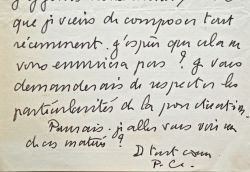 que je viens de composer tout
récemment. j'espère que cela ne
vous ennuiera pas ? je vous
demanderais de respecter les
particularités de la ponctuation.
Pourrais-je aller vous voir un
de ces matins ?
P.